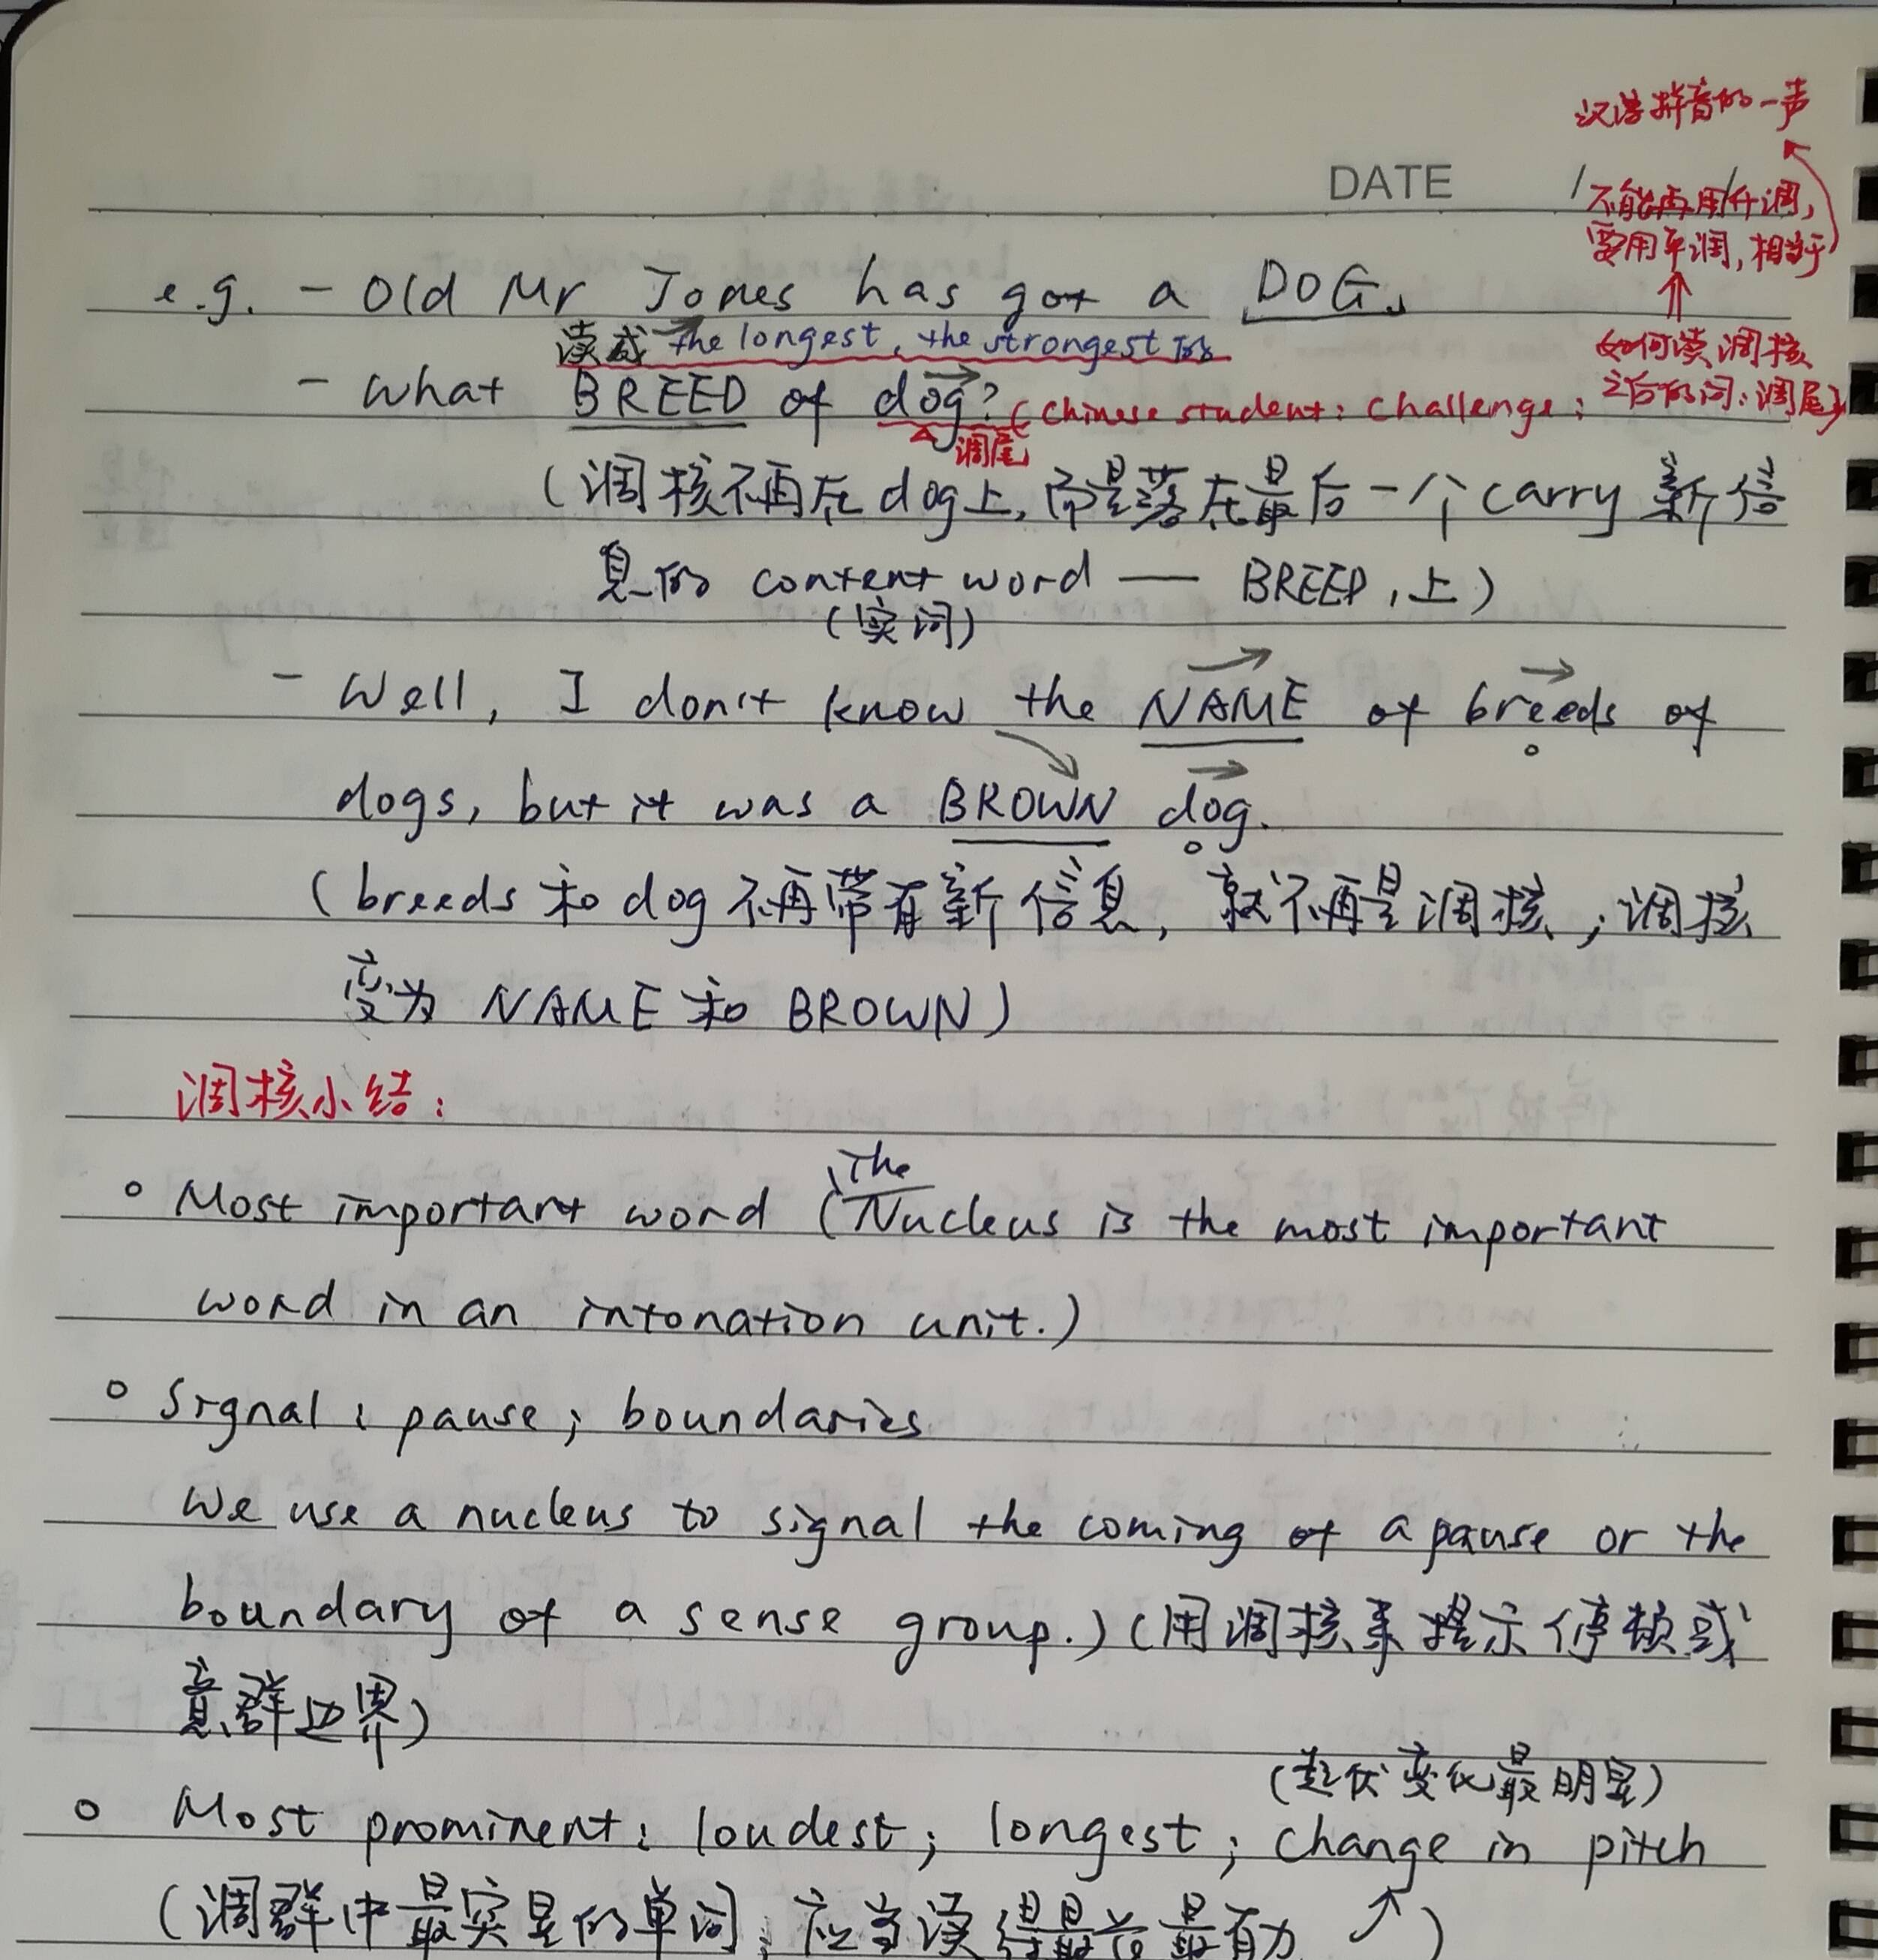 汉语拼音的一声
DATE / /
不能再用升调,
要用平调,相当于
e.g. - Old Mr Jones has got a DOG.
读成 the longest, the strongest的
如何读调核
- What BREED of dog? (Chinese student: challenge:
之后的词:调尾)
调尾
(调核不再在dog上,而是落在最后一个carry 新信
息的 content word — BREED,上)
(实词)
- Well, I don't know the NAME of breeds of
dogs, but it was a BROWN dog.
(breeds 和 dog 不再带有新信息, 就不再是调核;调核
变为 NAME 和 BROWN)
调核小结:
The
○ Most important word (Nucleus is the most important
word in an intonation unit.)
○ Signal: pause; boundaries
We use a nucleus to signal the coming of a pause or the
boundary of a sense group.) (用调核来提示停顿或
意群边界)
(起伏变化最明显)
○ Most prominent: loudest; longest; change in pitch
(调群中最突显的单词; 应当读得最长最有力 )